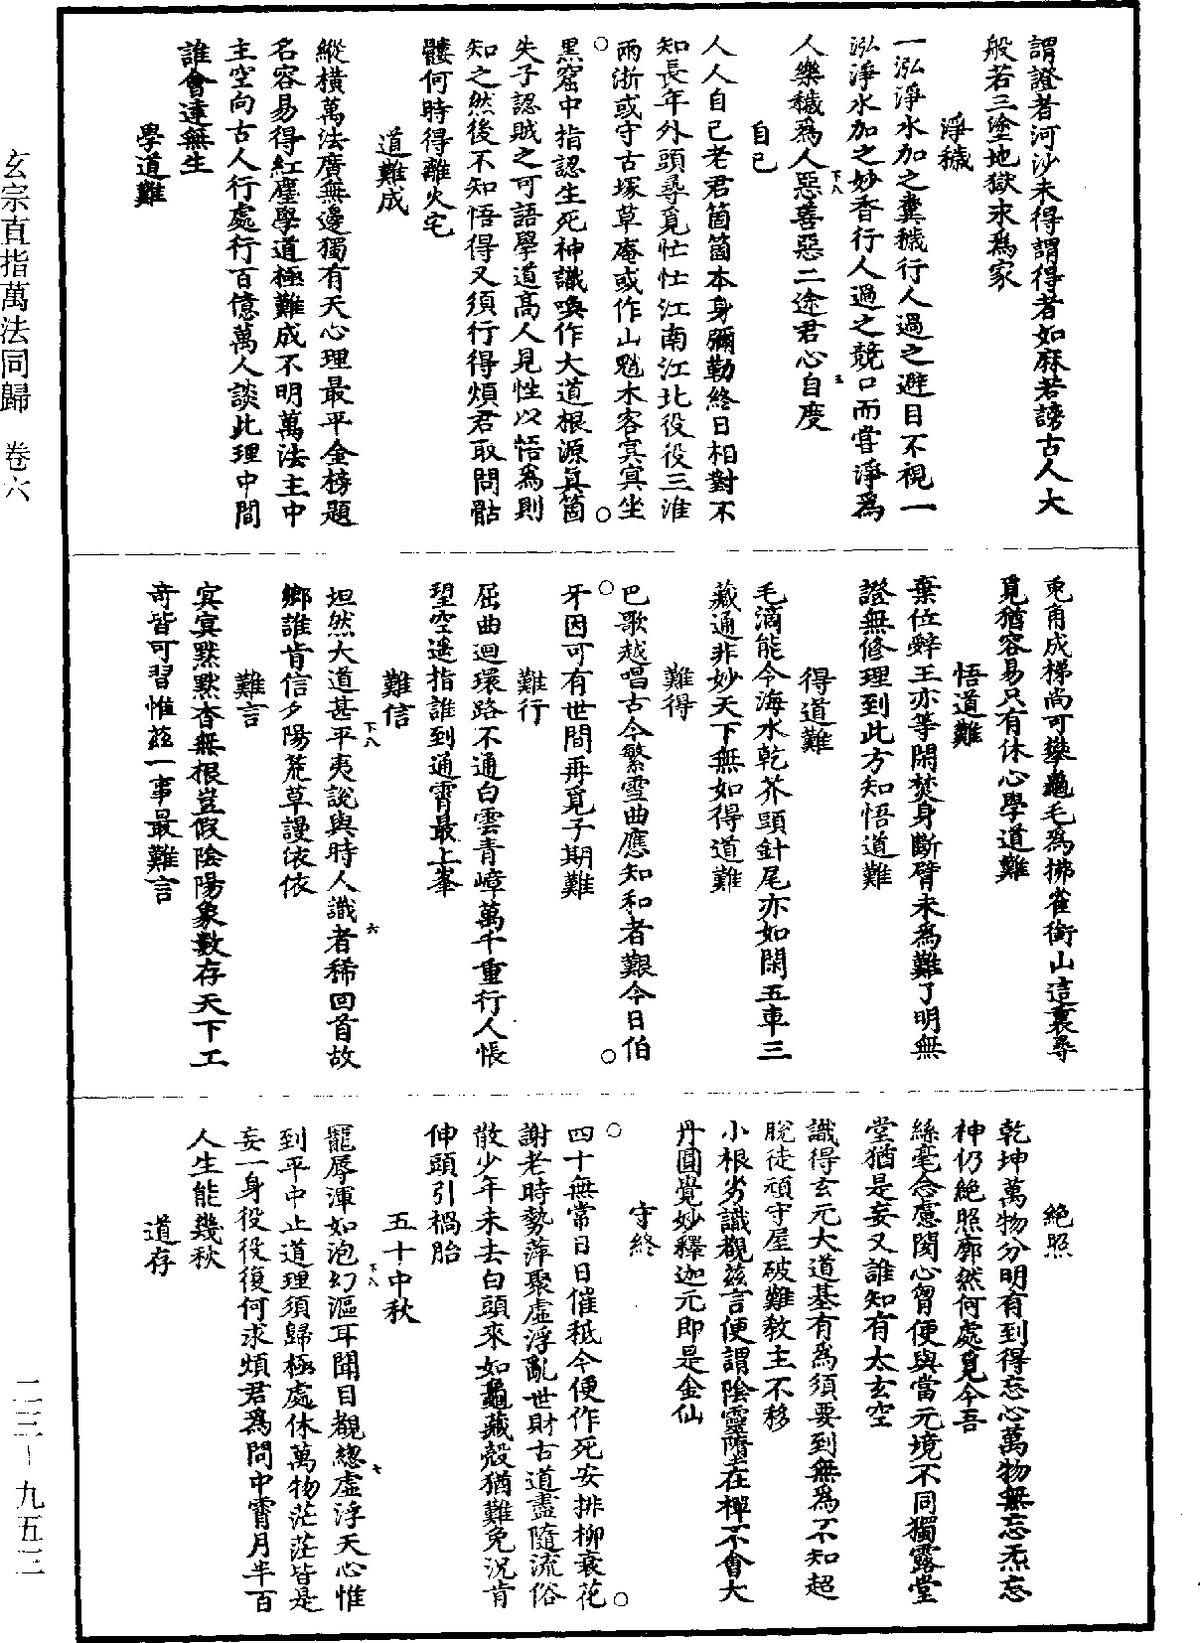 謂證者河沙未得謂得者如麻若謗古人大
般若三塗地獄求為家
淨穢
一泓淨水加之糞穢行人過之避目不視一
泓淨水加之妙香行人過之競口而嘗淨為
人樂穢為人惡善惡二途君心自度
下八
五
自己
人人自己老君箇箇本身彌勒終日相對不
知長年外頭尋覓忙忙江南江北役役三淮
兩浙或守古塚草庵或作山魈木客冥冥坐
○
○
黑窟中指認生死神識喚作大道根源真箇
失子認賊之可語學道高人見性以悟為則
知之然後不知悟得又須行得煩君取問骷
髏何時得離火宅
道難成
縱橫萬法廣無邊獨有天心理最平金榜題
名容易得紅塵學道極難成不明萬法主中
主空向古人行處行百億萬人談此理中間
誰會達無生
學道難
兎角成梯尚可攀龜毛為拂雀銜山這裏尋
覓猶容易只有休心學道難
悟道難
棄位辭王亦等閑焚身斷臂未為難了明無
證無修理到此方知悟道難
得道難
毛滴能令海水乾芥頭針尾亦如閑五車三
藏通非妙天下無如得道難
難得
巴歌越唱古今繁雪曲應知和者艱今日伯
○
○
牙因可有世間再覓子期難
難行
屈曲迴環路不通白雲青嶂萬千重行人悵
望空遙指誰到通霄最上峯
難信
坦然大道甚平夷說與時人識者稀回首故
下八
六
鄉誰肯信夕陽荒草謾依依
難言
冥冥默默杳無根豈假陰陽象數存天下工
奇皆可習惟茲一事最難言
絕照
乾坤萬物分明有到得忘心萬物無忘炁忘
神仍絕照廓然何處覓今吾
絲毫念慮閡心胷便與當元境不同獨露堂
堂猶是妄又誰知有太玄空
識得玄元大道基有為須要到無為不知超
脫徒頑守屋破難教主不移
小根劣識觀茲言便謂陰靈墮在禪不會大
丹圓覺妙釋迦元即是金仙
守終
四十無常日日催秪今便作死安排柳衰花
○
○
謝老時勢萍聚虛浮亂世財古道盡隨流俗
散少年未去白頭來如龜藏殼猶難免況肯
伸頭引禍胎
五十中秋
寵辱渾如泡幻漚耳聞目覩緫虛浮天心惟
下八
七
到平中止道理須歸極處休萬物茫茫皆是
妄一身役役復何求煩君為問中霄月半百
人生能幾秋
道存
玄宗直指萬法同歸　卷六
二三－九五三